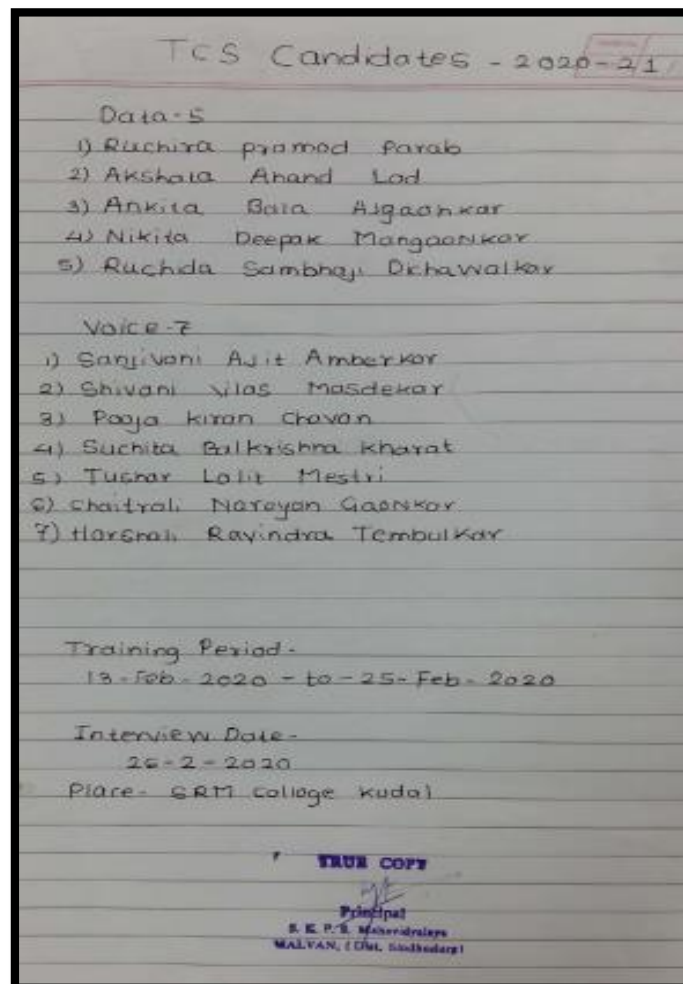 TCS Candidates - 2020-21
Data-5
1) Ruchira pramod Parab
2) Akshata Anand Lad
3) Ankita Bala Ajgaonkar
4) Nikita Deepak Mangaonkar
5) Ruchida Sambhaji Dichawalkar
Voice-7
1) Sanjivani Ajit Amberkar
2) Shivani Vilas Masdekar
3) Pooja kiran Chavan
4) Suchita Balkrishna Kharat
5) Tushar Lalit Mestri
6) Chaitrali Narayan Gaonkar
7) Harshali Ravindra Tembulkar
Training Period-
13-Feb-2020-to-25-Feb-2020
Interview Date-
26-2-2020
Place- SRM college kudal
TRUE COPY
Principal
S. K. P. S. Mahavidyalaya
MALVAN, (Dist. Sindhudurg)